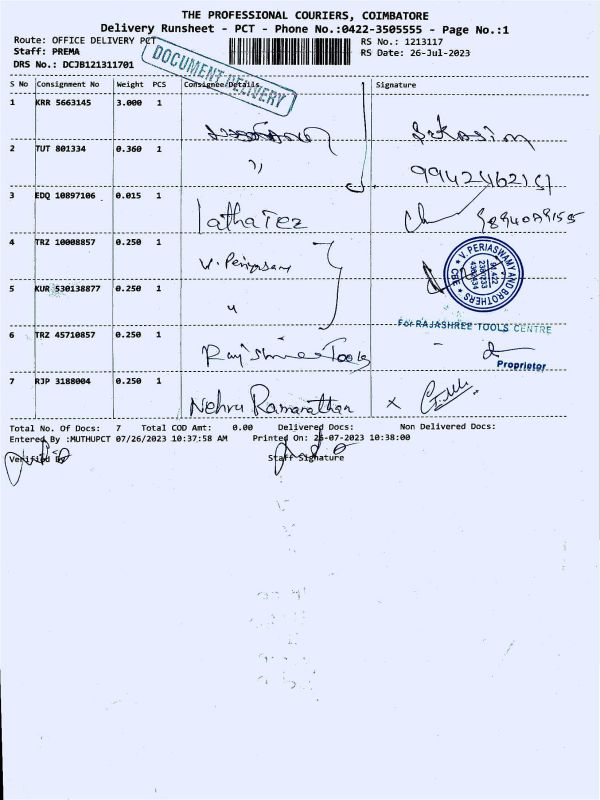 THE PROFESSIONAL COURIERS, COIMBATORE
Delivery Runsheet - PCT - Phone No.:0422-3505555 - Page No.:1
Route: OFFICE DELIVERY PCT
RS No.: 1213117
Staff: PREMA
RS Date: 26-Jul-2023
DRS No.: DCJB121311701
DOCUMENT DELIVERY
S No Consignment No Weight PCS Consignee Details Signature
1 KRR 5663145 3.000 1
2 TUT 801334 0.360 1
3 EDQ 10897106 0.015 1
4 TRZ 10008857 0.250 1 V. Periyasamy
V. PERIASWAMY AND BROTHERS
CBE
5 KUR 530138877 0.250 1
For RAJASHREE TOOLS CENTRE
6 TRZ 45710857 0.250 1 Rajshree Tools
Proprietor
7 RJP 3188004 0.250 1 Nehru Ramanathan x
Total No. Of Docs: 7 Total COD Amt: 0.00 Delivered Docs: Non Delivered Docs:
Entered By :MUTHUPCT 07/26/2023 10:37:58 AM Printed On: 26-07-2023 10:38:00
Verified By Staff Signature